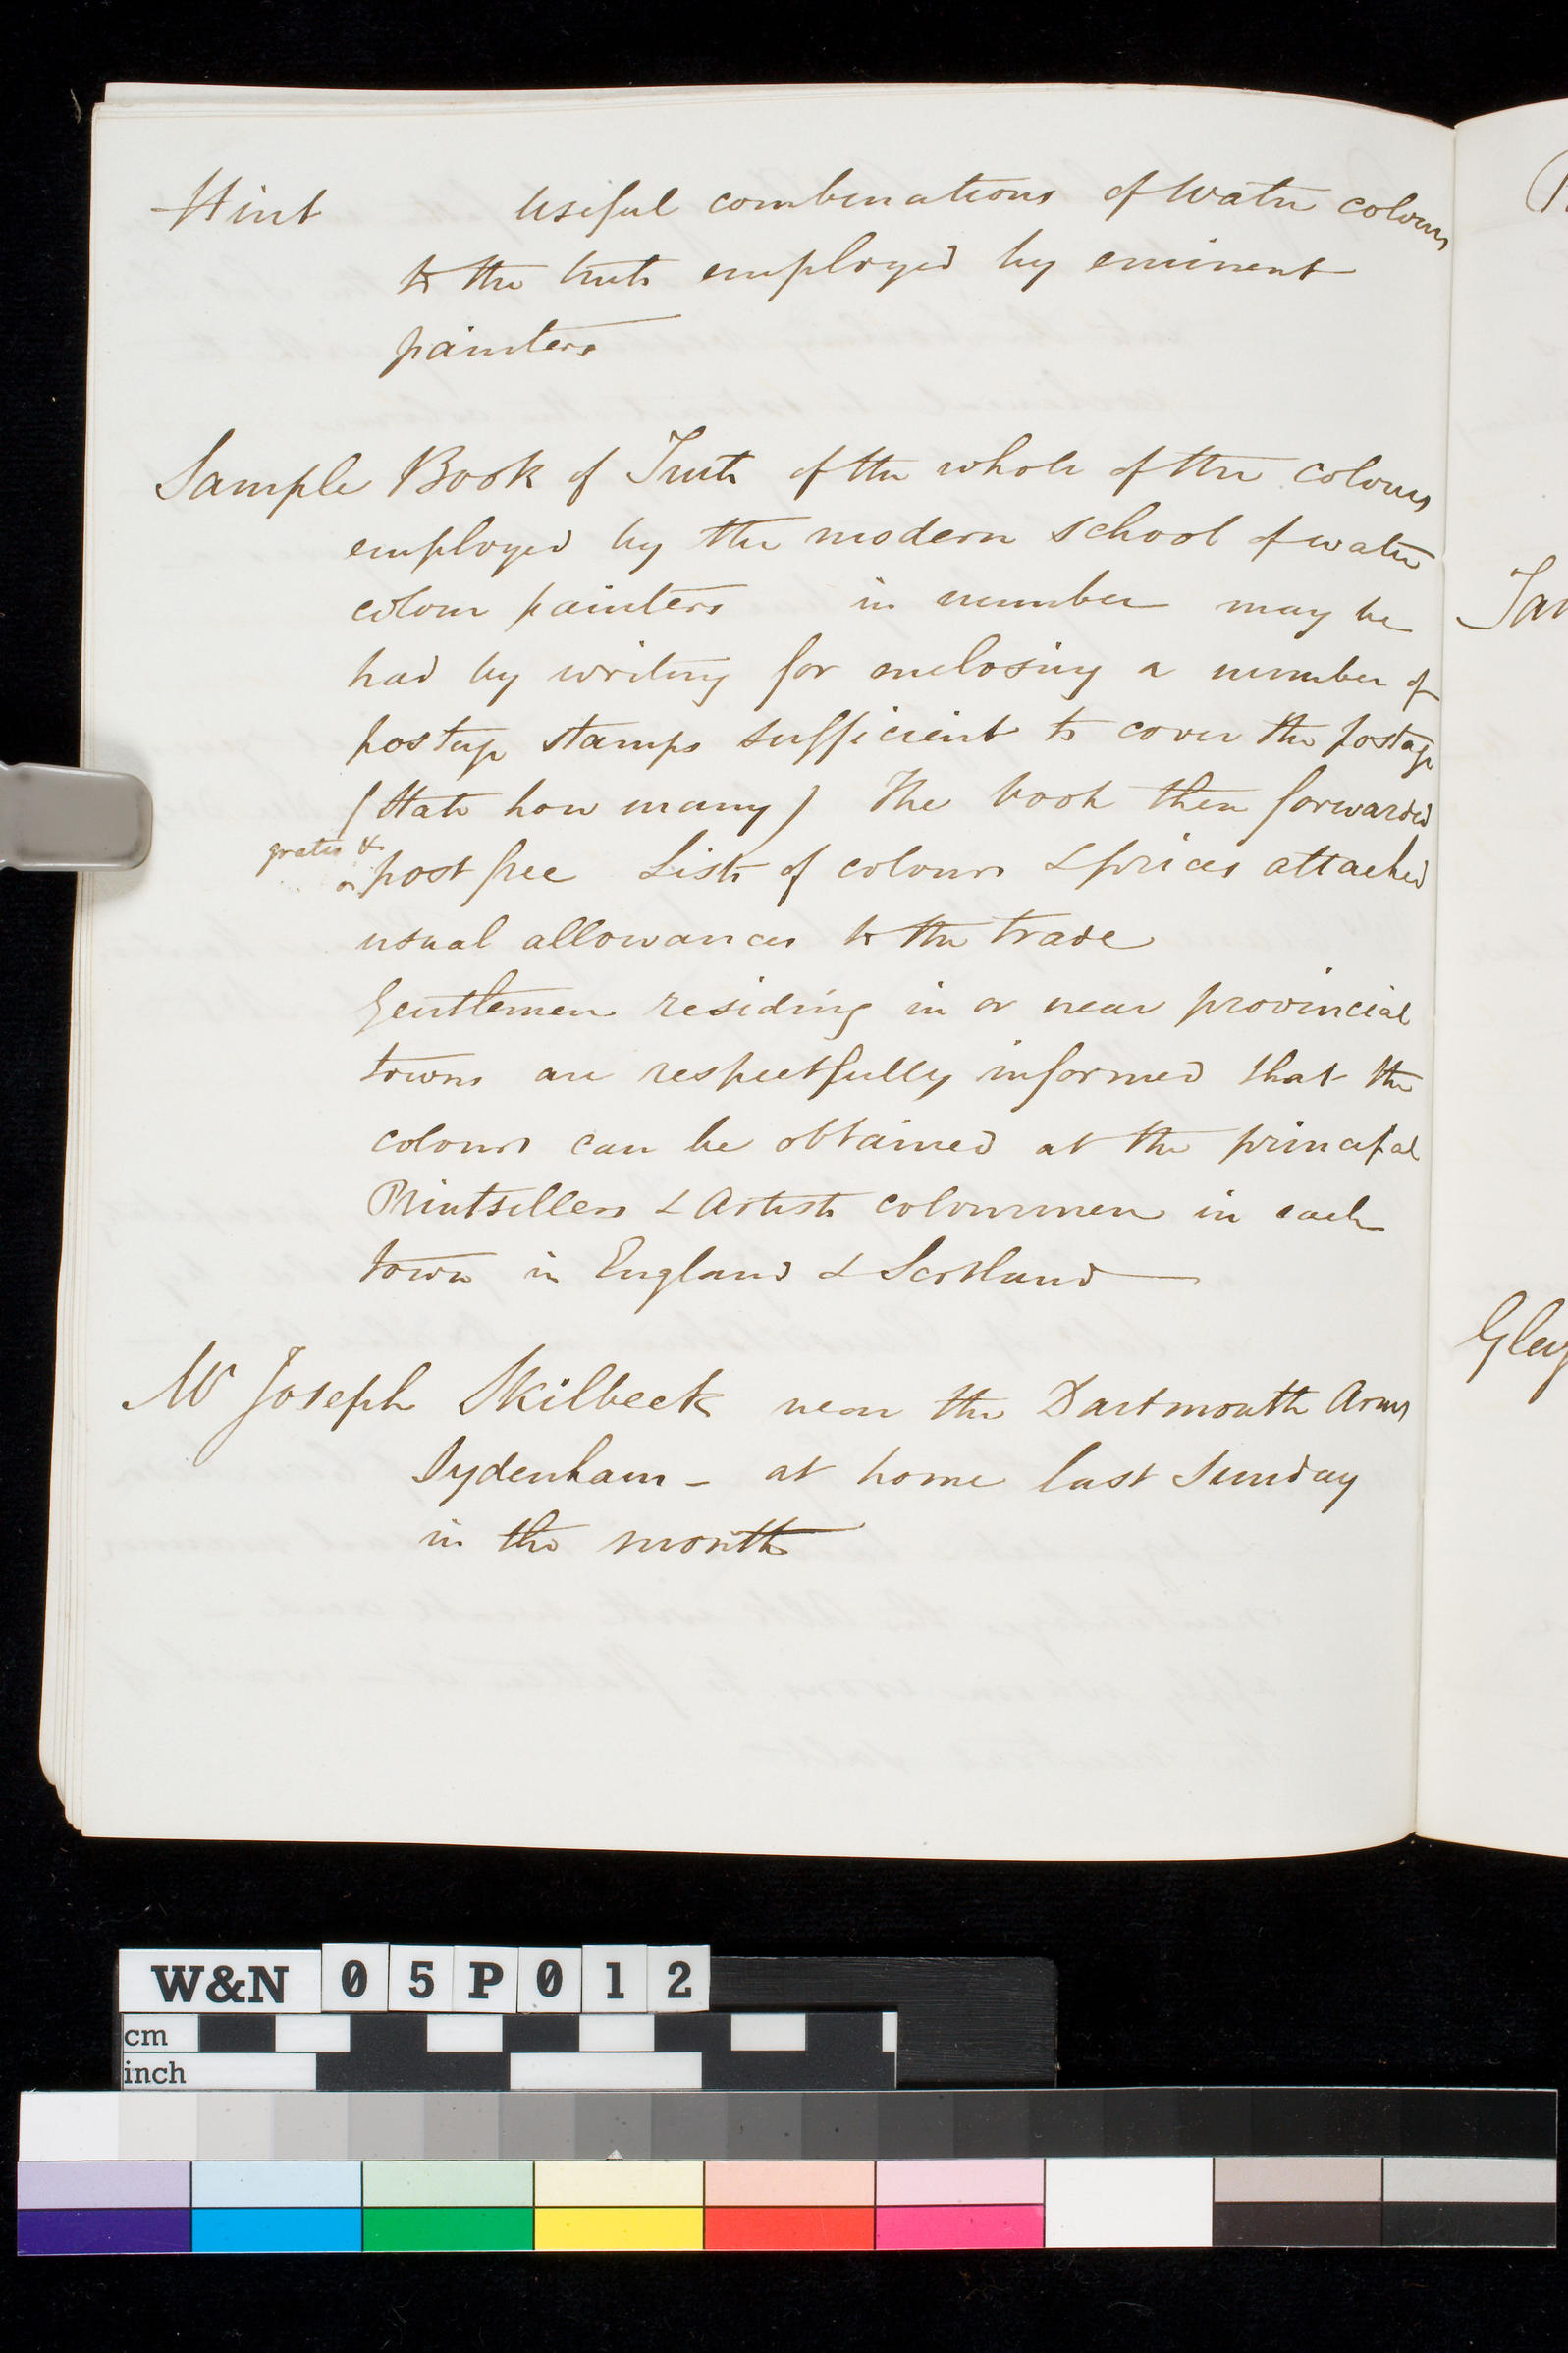 Hint Useful combinations of Water colours
to the tints employed by eminent
painters
Sample Book of Tints of the whole of the colours
employed by the modern school of water
colour painters in number may be
had by writing for enclosing a number of
postage stamps sufficient to cover the postage
(State how many) The book then forwarded
gratis &
or post free Lists of colours & prices attached
usual allowances to the trade
Gentlemen residing in or near provincial
towns are respectfully informed that the
colours can be obtained at the principal
Printsellers & Artists colourmen in each
town in England & Scotland
Mr Joseph Skilbeck near the Dartmouth Arms
Sydenham - at home last Sunday
in the month
W&N 05P012
cm
inch